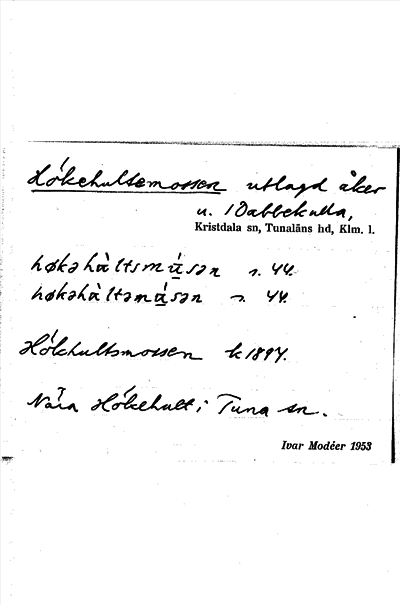 Hökehultsmossen utlagd åker
u. 1 Dabbekulla,
Kristdala sn, Tunaläns hd, Klm. l.
høkəhùltsmɑ́sən s. 44.
høkəhùltəmɑ́sən s. 44.
Hökhultsmossen k 1897.
Nära Hökehult i Tuna sn.
Ivar Modéer 1953